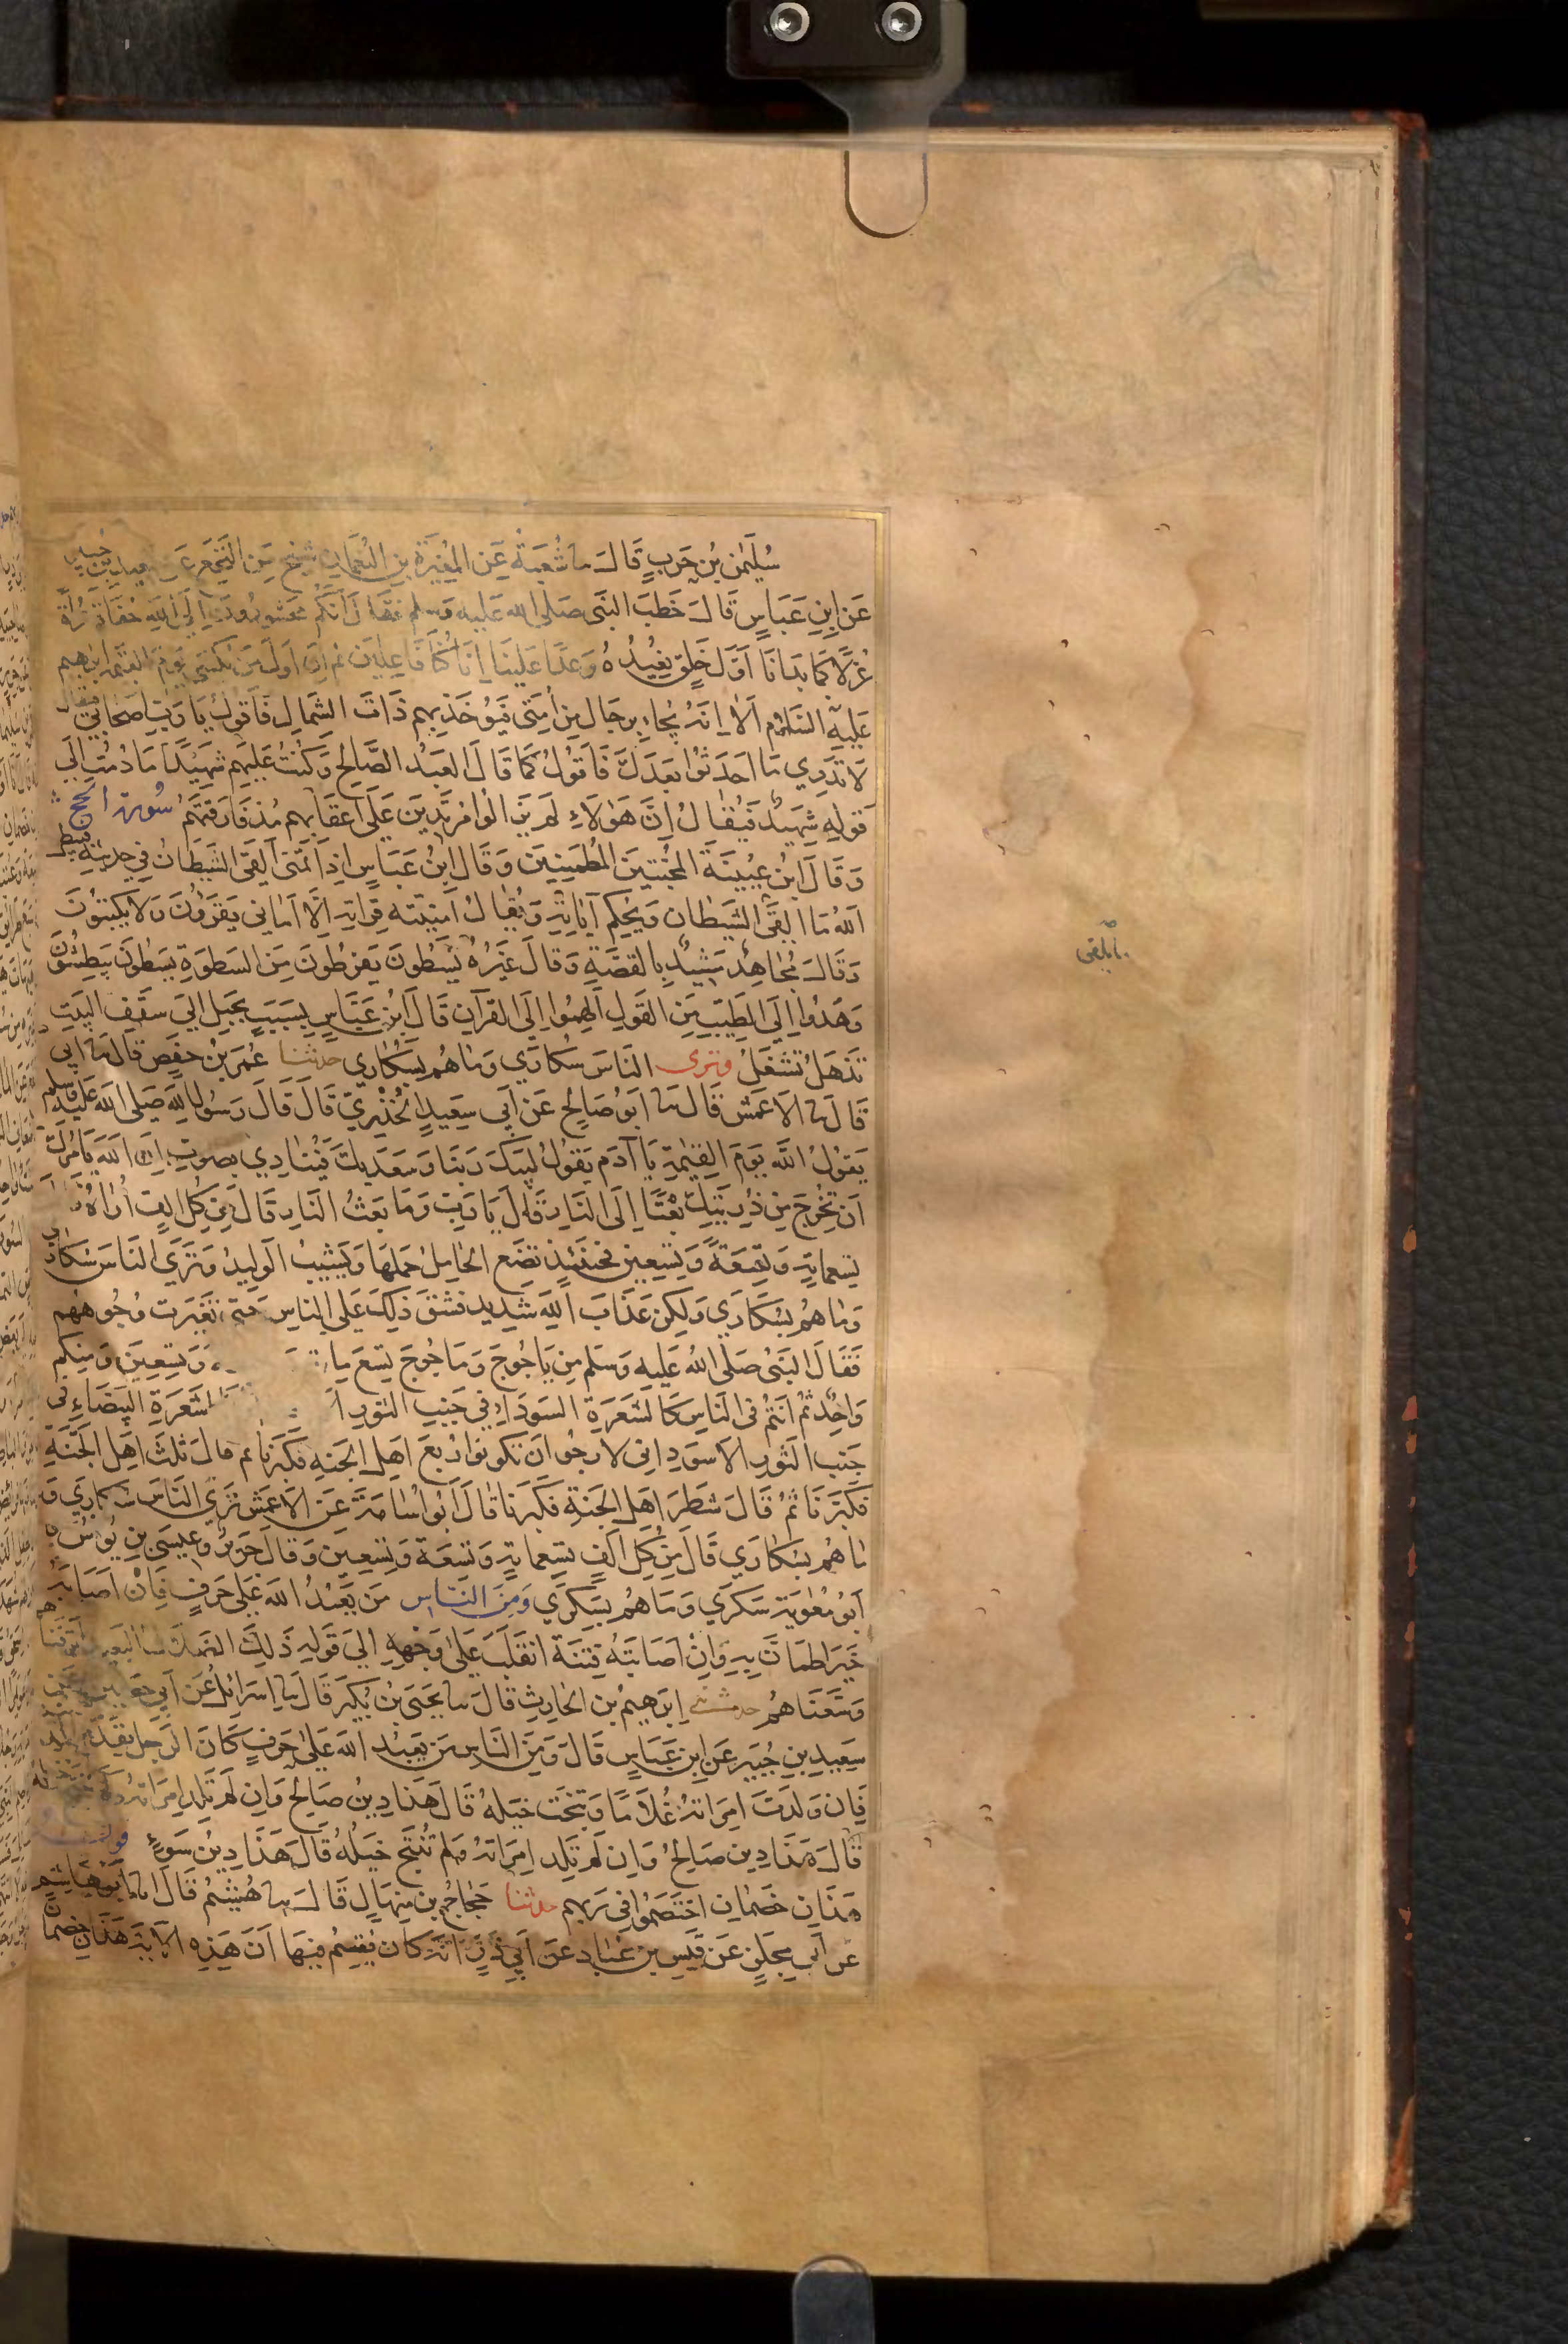 سُلَيمٰن بْن حَربٍ قَالَ نا شُعْبَةُ عَنِ المُغِيَرةِ بنِ النُعمَانِ شَيخٌ مِنَ النَخَعِ عَن سَعِيدِ بنِ جُبَيرٍ
عَن ابنِ عَبَاسٍ قَالَ خَطَبَ النبَى صَلى الله عَليه وَسلم فقَالَ اَنكُم مَحشورُونَ اِلَى اللهِ حُفَاةً عُرَاةً
غُرْلًا كَمَا بَدَانَا اَوَّلَ خَلقٍ نُعِيْدُهُ وَعدًا عَلينَا اِنَّا كُنَّا فَاعِلِيَن ثم اِنَ اَولَ مَن يُكسَى يَومَ القيٰمةِ ابرٰهيم
عَليهِ السَلٰم اَلا اِنَهُ يُجَاءِ بِرجَالٍ مِن اُمتَى فَيُوخَذ بِهِم ذَاتَ الشِمَالِ فَاَقولُ يَا رَبِّ اصحَابى فيقال
لَا تَدرِي مَا اَحدَثوُا بَعدَكَ فَاَقولُ كمَا قَالَ العَبدُ الصَّالحُ وَكنتُ عَليهم شهِيدًا مَا دُمتُ اِلَى
قَولِهِ شَهِيدٌ فَيُقَالُ اِنَّ هَؤلَاءِ لَم يَزَالُوا مُرتَدِينَ عَلَى اعقَابِهم مُنذُ فَارَقتَهم سُورة الحج
وَقَالَ ابْن عُيَينَةَ المُخبِتِينَ المُطمَئِنِينَ وَقَالَ ابنُ عَبَاسٍ اِذَا تَمَنَى اَلقَى الشَيطَان فِي حَديثهِ فيبطل
اَللهُ مَا القَى الشَيطان وَيُحكِم آيَاتِهِ وَيُقَالُ اُمنِيَتَه قِرَاتِه اِلَّا اَمَانِي يَقرَؤنَ وَلَا يَكتبُونَ
وَقَالَ مُجَاهِدٌ مَشيدٌ بِالقصَّةِ وَقالَ غَيرُهُ يَسطُونَ يَفرُطونَ مِنَ السَطوَةِ يَسطُونَ يَبطِشُونَ
وَهُدُوا اِلَى الطَيّبِ مِنَ القَولِ اُلهِمُوا اِلَى القرآنِ قَالَ ابْن عَبَّاسٍ بِسَبَبٍ بِحَبلٍ الِىَ سَقفِ البَيتِ
تَذهَلُ تشغَلُ وترى الناسَ سُكَارَي وَمَا هُم بِسُكَارَي حدثنا عُمَرُ بنُ حَفصٍ قالَ نا ابِى
قَالَ نا الاعمَش قَالَ نا ابَوُ صَالحٍ عَن اَبِي سَعِيدٍ الخُدْرِيّ قَالَ قَالَ رَسُولُ اللهِ صَلى الله عَليه وسلم
يَقُولُ اللهُ يَومَ القِيٰمَةِ يَا آدَم يَقُولُ لبَيكَ رَبنَا وَسَعدَيكَ فَيُنَادِي بصَوتٍ اِنَ اللهَ يَامُرُكَ
اَن تُخرِجَ مِن ذُرِيَتِكَ بَعْثًا اِلَى النَارِ قَالَ يَا رَبِّ وَمَا بَعثُ النَارِ قَالَ مِن كُل اَلفٍ اُرَاهُ قَالَ
تِسعمايةٍ وَتِسعَةً وَتِسعِين فحِنَئِذٍ تَضَع الحَامِلُ حَملَهَا وَيَشِيبُ الوَلِيدُ وَتَرَي النَاسَ سُكَارَي
وَمَا هُم بِسُكَارَي وَلكِن عَذَابَ اللهِ شَدِيد فشَق ذَلِكَ عَلى الناسِ حَتى تَغَيرَت وُجُوههم
فَقَالَ النبَىُ صَلَى اللهُ عَليهِ وَسَلم مِن يَاجُوجَ وَمَاجُوجَ تِسعَ ماية وَتِسعِيَن وَمِنكم
وَاحِدٌ ثُمَ انَتُم فى النَاسِ كَالشَعَرَةِ السَودَاءِ فِي جَنبِ الثَورِ الشَعَرَةِ البَيضَاءِ فى
جَنبِ الثَورِ الاَسوَدِ اِنى لَارجُو اَن تَكونُوا رُبعَ اَهلِ الجَنةِ فكَبرنَا ثم قالَ ثلثَ اَهلِ الجَنَّةِ
فكَبرَنَا ثُمَ قَالَ شَطرَ اَهلِ الجَنةِ فكَبرَنَا قَالَ اَبُو اُسَامَةَ عَن الاَعمَشِ تَرَي النَاسَ سُكَارَي وَ
مَا هُم بِسُكَارَي قَالَ مِن كلِ اَلفٍ تِسعمايةٍ وَتسعَة وَتِسعِين وَقالَ جَرِيرٌ وَعِيسَى بنِ يُونسَ وَ
اَبُو مُعٰوِيَة سَكرَي وَمَا هُم بِسَكرَي وَمِنَ النَاسِ مَن يَعبُدُ اللهَ عَلى حَرفٍ فَاِنْ اَصَابَهُ
خَيَر اطمَانَ بِهِ وَاِنْ اَصَابَتهُ فِتنَة انقَلَبَ عَلى وَجْهِهِ الِىَ قَولِهِ ذَلِكَ الضَلَالُ البَعيد اَترَفنَاهم
وَسَّعنَاهُم حدثنى اِبرَهِيمُ بن الحَارِثِ قَالَ نا يَحيَى بنُ بُكَيرٍ قَالَ نا اِسرَائِلُ عَن اَبى حَصينٍ عَن
سَعِيدِ بنِ جُبَيرٍ عَن ابنِ عَبَاسٍ قَالَ وَمِنَ النَاسِ مَن يَعبُدُ اللهَ عَلى حَرفٍ كَانَ الرَجلُ يقدَم المدينة
فَاِن وَلَدَت امرَاتهُ غُلَامًا وَنتجَت خَيلهُ قَالَ هَذَا دِينٌ صَالحٌ وَاِن لَم تَلِد امرَاتهُ وَلم تنتج خيله
قَالَ هَذَا دِين صَالحٌ وَاِن لَم تَلِد امرَاتهُ وَلم تُنتَج خَيلُهُ قَالَ هَذَا دِينُ سَوءٍ قوله
هَذَانِ خَصمَانِ اختَصَمُوا فى رَبهم حدثنا حَجَاجُ بنُ مِنهَالٍ قَالَ نا هُشَيمٌ قَالَ انا اَبُو هَاشِمٍ
عَن اَبِي مِجلَزٍ عَن قَيسِ بنِ عُبَادٍ عَن اَبِي ذَرٍّ انَهُ كَانَ يُقسِمُ فِيهَا اَنَ هَذِهِ الآيَةَ هَذَانِ خَصمَانِ
مايلقى